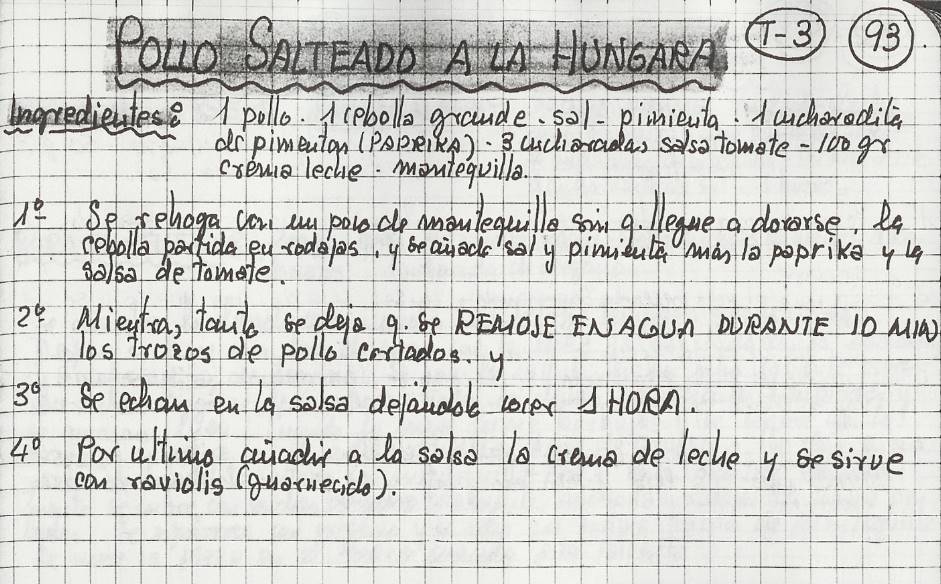 POLLO SALTEADO A LA HUNGARA. T-3 93.
Ingredientes: 1 pollo. 1 cebolla grande. sal - pimienta. 1 cucharadita
de pimenton (PAPRIKA). 3 cucharadas salsa tomate - 100 gr
crema leche. mantequilla.
1º Se rehoga con un poco de mantequilla sin q. llegue a dorarse, la
cebolla partida en rodajas, y se añade sal y pimienta más la paprika y la
salsa de tomate.
2º Mientras, tanto se deja q. se REMOJE EN AGUA DURANTE 10 MIN
los trozos de pollo cortados. y
3º Se echan en la salsa dejándolo cocer 1 HORA.
4º Por ultimo añadir a la salsa la crema de leche y se sirve
con raviolis (guarnecido).